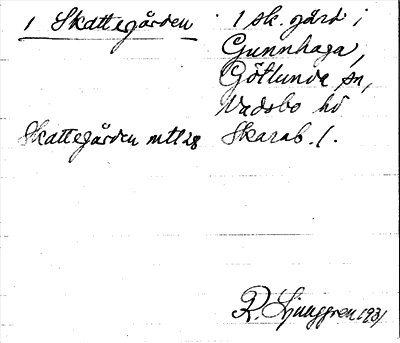 1 Skattegården
1 sk. gård i
Gunnhaga,
Götlunda sn,
Vadsbo hd
Skarab. l.
Skattegården mtl 28
R. Ljunggren 1931